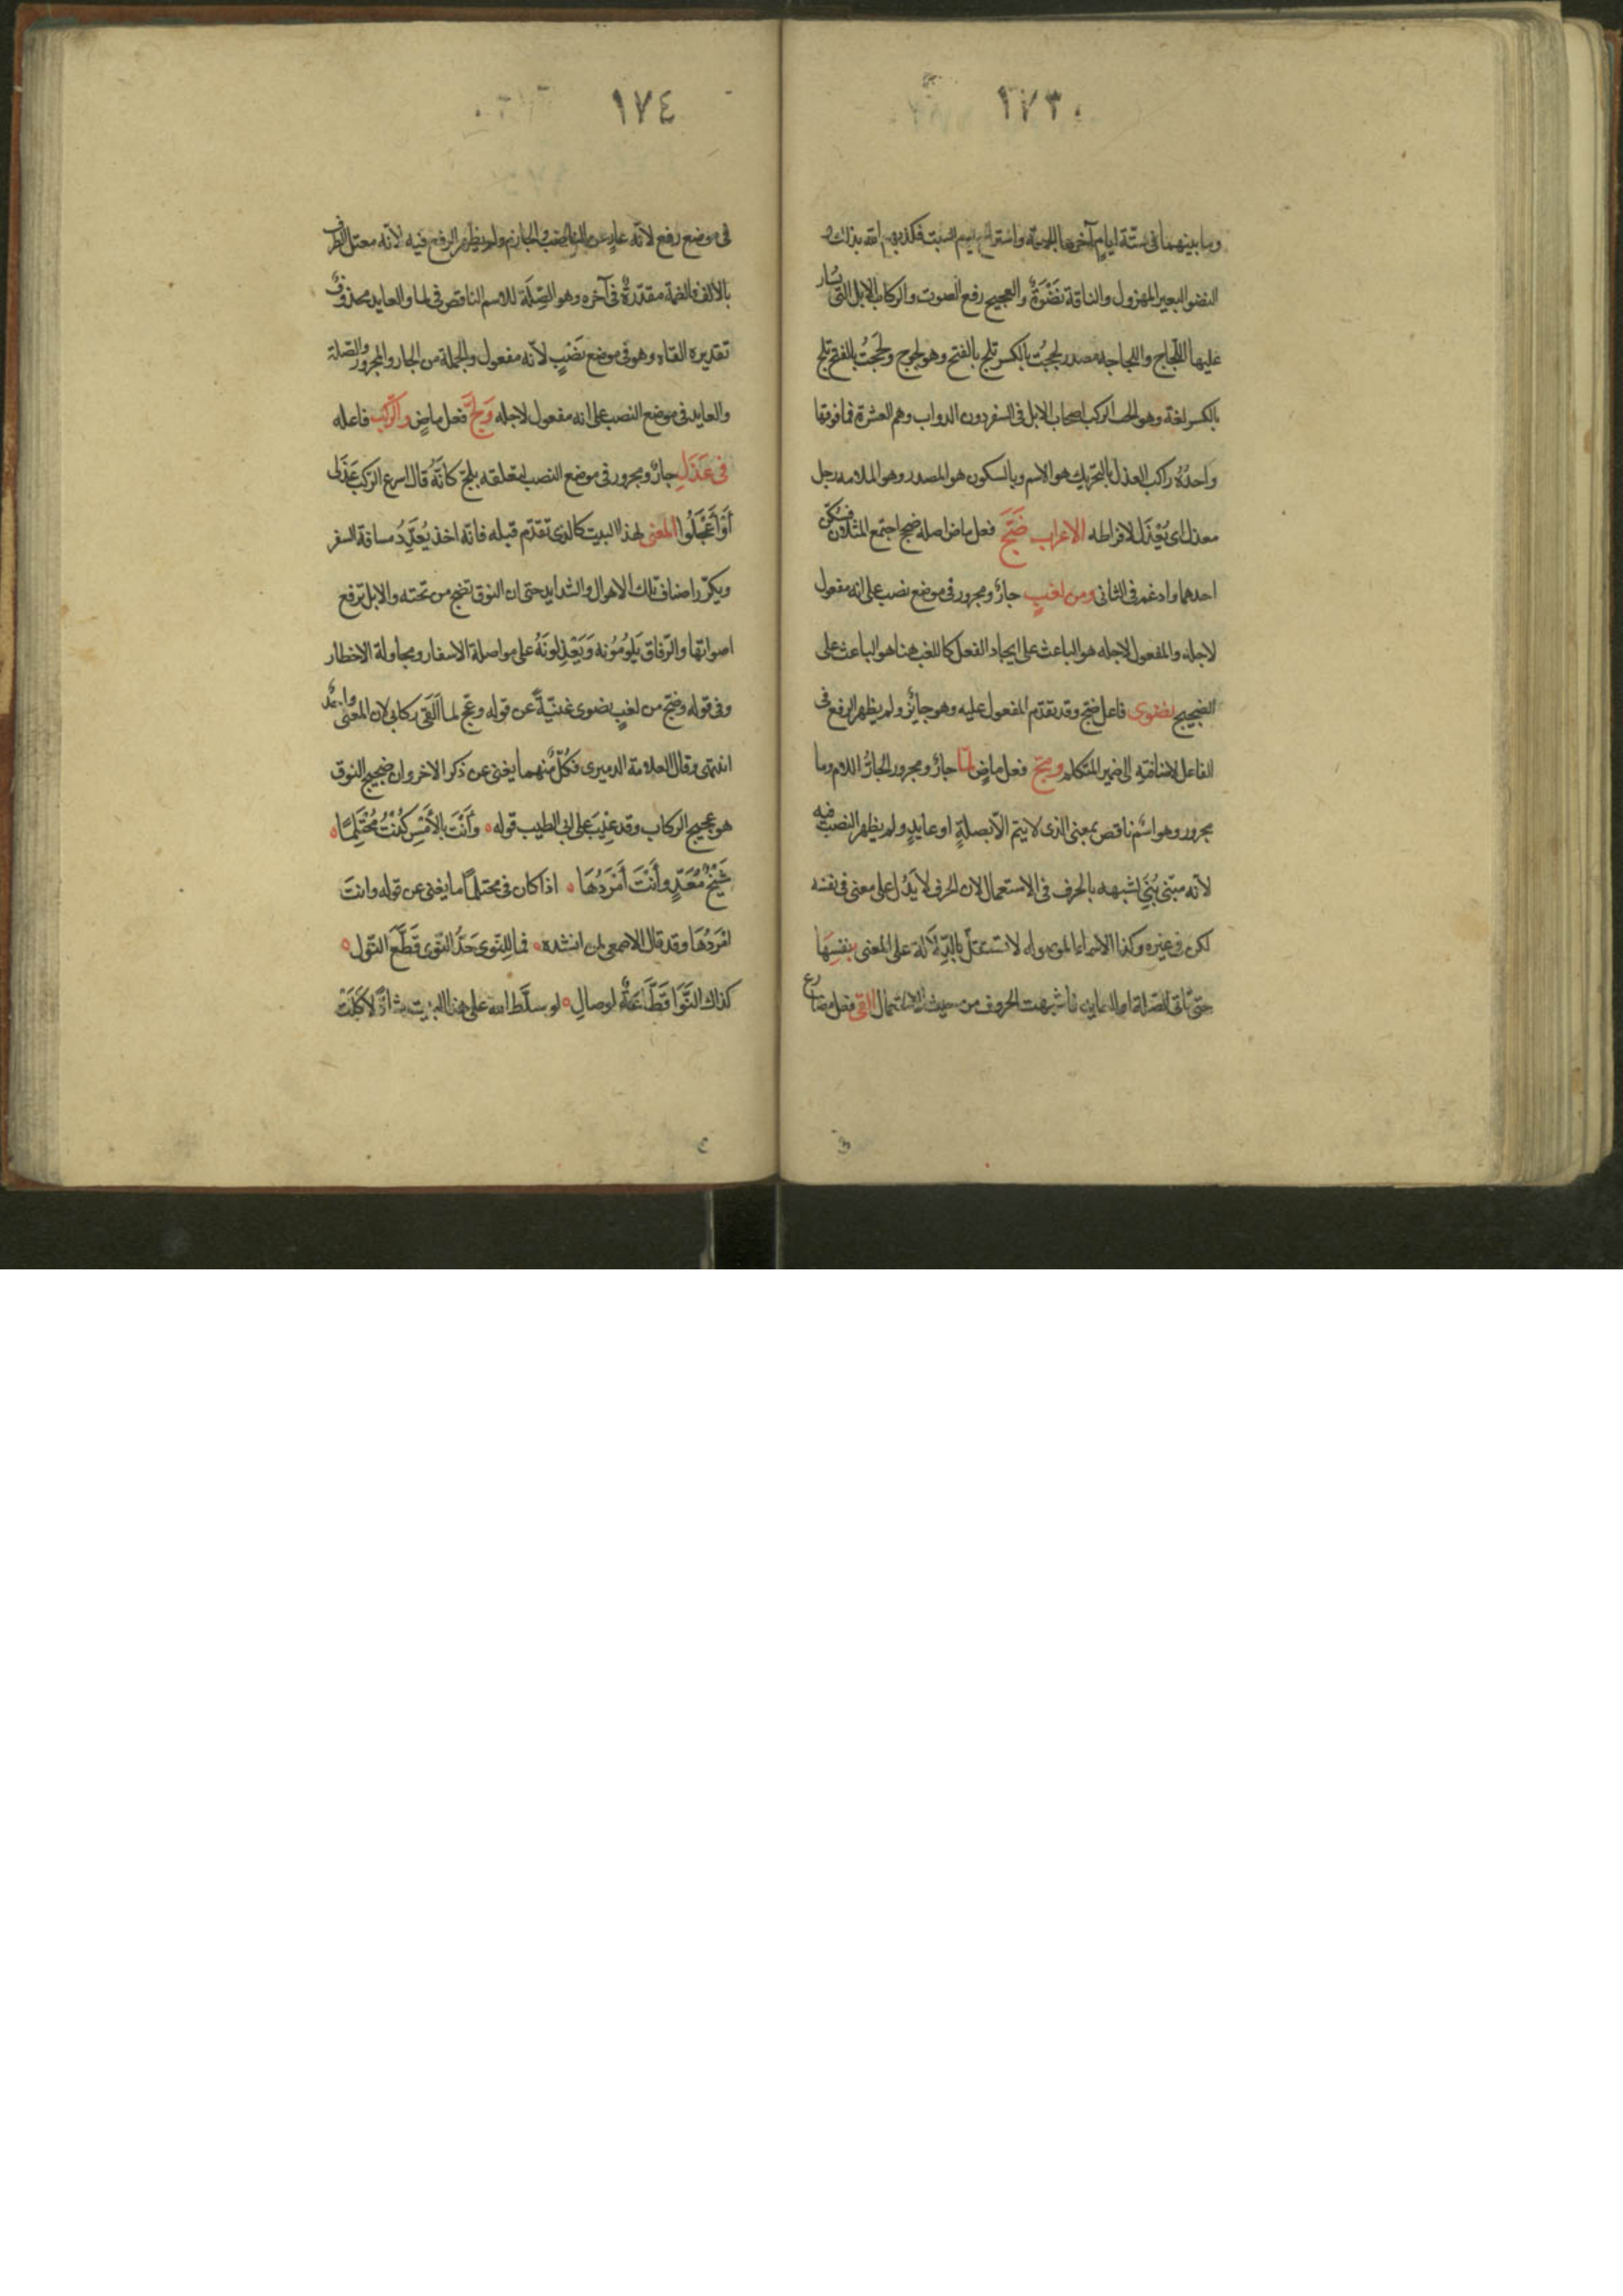 ١٧٣
وما بينهما فى ستة ايام آخرها الجمعة واستراح يوم السبت فكذبهم الله بذلك و
النضو البعير المهزول والناقة نضوة والعجيج رفع الصوت والركاب الابل التى يسار
عليها اللجاج واللجاجة مصدر لججت بالكسر تلج بالفتح وهو لجوج ولججت بالفتح تلج
بالكسر لغة وهو الركب اصحاب الابل فى السفر دون الدواب وهم العشرة فما فوقها
واحده راكب العذل بالتحريك هو الاسم وبالسكون هو المصدر وهو الملامه رجل
معذل اى يُعْذَل لافراطه الاعراب ضَجَّ فعل ماض اصله ضجج اجتمع المثلان فسكن
احدهما وادغم فى الثانى ومن لغبٍ جارٌ ومجرور فى موضع نصب على انه مفعول
لاجله والمفعول لاجله هو الباعث على ايجاد الفعل كاللغب هنا هو الباعث على
الضجيج نضوى فاعل ضج وقد تقدم المفعول عليه وهو جائز ولم يظهر الرفع فى
الفاعل لاضافته الى ضمير المتكلم وعج فعل ماضٍ لما جارٌ ومجرور الجارُّ اللام وما
مجرور وهو اسم ناقص بمعنى الذى لا يتم الا بصلةٍ او عايدٍ ولم يظهر النصب فيه
لانه مبنى بُنِىَ لشبهه بالحرف فى الاستعمال لان الحرف لا يدُل على معنى فى نفسه
لكن فى غيره وكذا الاسماء الموصوله لا تستقل بالدِّلالة على المعنى بنفسها
حتى تاتى الصلة او العايد فاشبهت الحروف من حيث الاستعمال القى فعل مضارع
١٧٤
فى موضع رفع لانه عارٍ عن الناصب والجازم ولم يظهر الرفع فيه لانه معتل الطرف
بالالف فالضمة مقدرةٌ فى آخره وهو الصِّلَة للاسم الناقص فى لما والعايد محذوفٌ
تقديره القاه وهو فى موضع نَصْبٍ لانّه مفعول والجملة من الجار والمجرور والصلة
والعايد فى موضع النصب على انه مفعول لاجله وَلَجَّ فعل ماضٍ والركب فاعله
فى عَذَلِ جارٌ ومجرور فى موضع النصب لتعلقه بلج كانّهُ قال اسرع الركب عَذَلى
أوْ أعْجَلُوا المعنى لهذا البيت كالذى تقدّم قبله فانّه اخذ يُعَدِّدُ مسافة السفر
ويكرّر اصناف تلك الاهوال والشدايد حتى ان النوق تضج من تحته والابل ترفع
اصواتها والرّفاق يَلُومُونه وَيَعْذِلُونَهُ على مواصلة الاسفار ومحاولة الاخطار
وفى قوله وضج من لغبٍ نضوى غنيّةً عن قوله وعج لما القى ركابى لان المعنى واحدٌ
انتهى وقال العلامة الدميرى فكُلٌّ منهما يغنى عن ذكر الاخر وان ضجيج النوق
هو عجيج الركاب وقد عِيبَ على ابى الطيب قوله ٥ وأنْتَ بالأمْسِ كُنْتَ مُحْتَلِمًا ٥
شَيْخُ مُعَدٍّ وأنْتَ أمْرَدُهَا ٥ اذا كان فى محتلمًا ما يغنى عن قوله وانتَ
امْرَدُهَا وقد قال الاصمعى لمن انشده ٥ فما للنوى جَدَّ النوى قَطَّعَ النوى ٥
كذاك النَّوَا قَطَّاعَةٌ لوصالِ ٥ لو سلّط الله على هذا البيت شاةً لاكَلَتْ